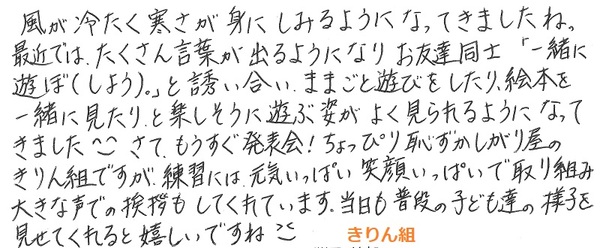 風が冷たく寒さが身にしみるようになってきましたね。
最近では、たくさん言葉が出るようになり お友達同士「一緒に
遊ぼ(しよう)。」と誘い合い、ままごと遊びをしたり、絵本を
一緒に見たり、と楽しそうに遊ぶ姿が よく見られるようになって
きました さて、もうすぐ発表会!ちょっぴり恥ずかしがり屋の
きりん組ですが、練習には、元気いっぱい 笑顔いっぱいで取り組み
大きな声での挨拶も してくれています。当日も 普段の子ども達の様子を
見せてくれると嬉しいですね
きりん組